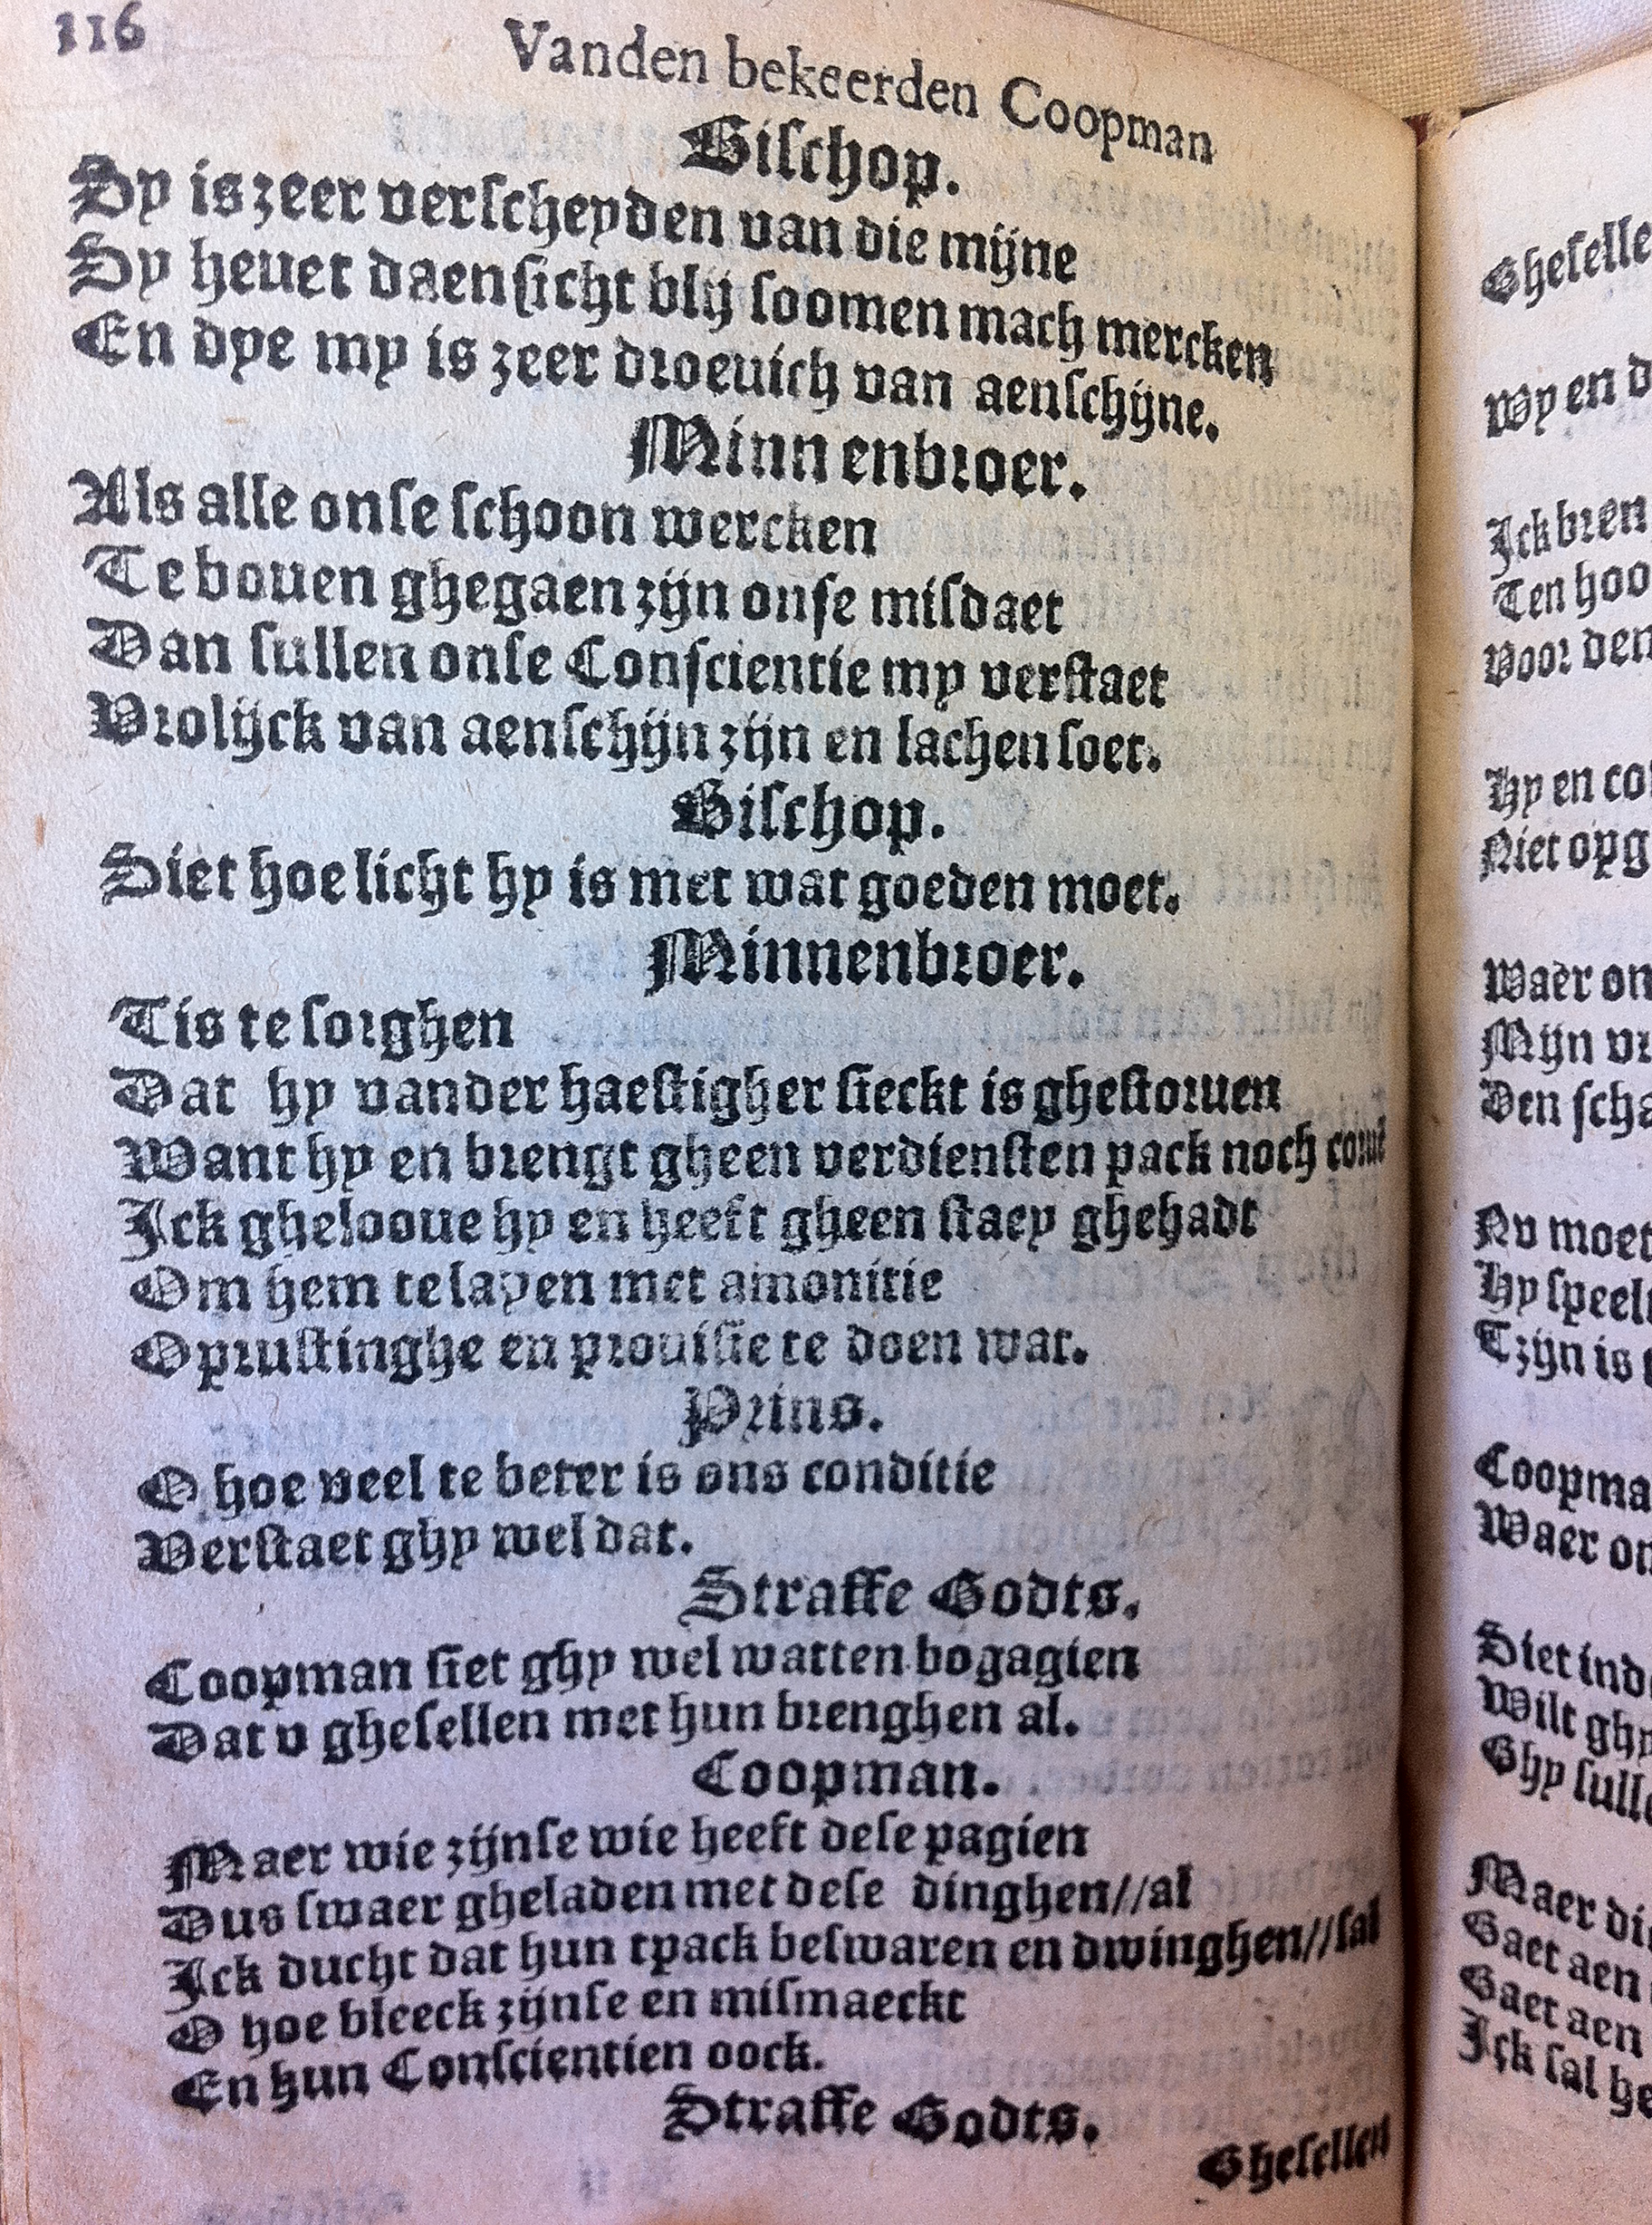 116
Vanden bekeerden Coopman
Bisschop.
Sy is zeer verscheyden van die mijne
Sy heuet daensicht blij soomen mach mercken
En dye my is zeer droeuich van aenschijne.
Minn enbroer.
Als alle onse schoon wercken
Te bouen ghegaen zijn onse misdaet
Dan sullen onse Conscientie my verstaet
Vrolijck van aenschijn zijn en lachen soet.
Bischop.
Siet hoe licht hy is met wat goeden moet.
Minnenbroer.
Tis te sorghen
Dat hy vander haestigher sieckt is ghestoruen
Want hy en brengt gheen verdiensten pack noch
Ick ghelooue hy en heeft gheen staey ghehadt
Om hem te layen met amonitie
Oprustinghe en prouisie te doen wat.
Prins.
O hoe veel te beter is ons conditie
Verstaet ghy wel dat.
Straffe Godts.
Coopman siet ghy wel watten bogagien
Dat v ghesellen met hun brenghen al.
Coopman.
Maer wie zijnse wie heeft dese pagien
Dus swaer gheladen met dese dinghen//al
Ick ducht dat hun tpack beswaren en dwinghen//sal
O hoe bleeck zijnse en mismaeckt
En hun Conscientien oock.
Straffe Godts.
Ghesellen
Gheselle
Wy en d
Ick bren
Ten hoo
Voor den
Hy en co
Niet opg
Waer on
Mijn vr
Den scha
Nv moet
Hy speel
Tzijn is
Coopma
Waer on
Siet ind
Wilt ghy
Ghy sull
Maer di
Gaet aen
Gaet aen
Ick sal he